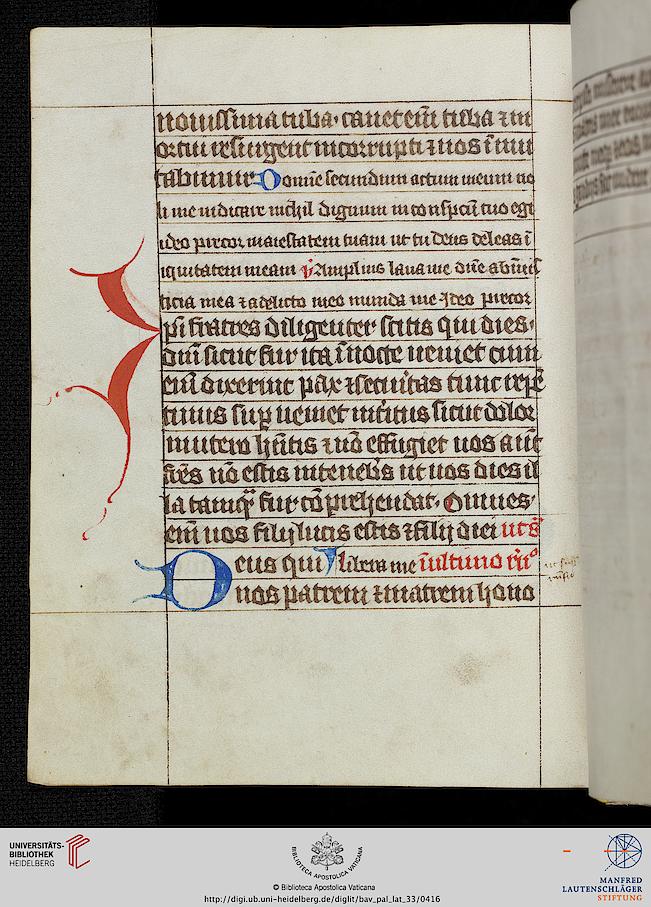 nouissima tuba. canet eni tuba et m
ortui resurgent incorrupti et nos imu
tabimur Domine secundum actum meum no
li me iudicare nichil dignum in conspectu tuo egi
ideo precor maiestatem tuam ut tu deus deleas i
iquitatem meam v Amplius laua me dne ab iniu
sticia mea et a delicto meo munda me Ideo precor
Ipsi fratres diligenter scitis qui dies.
dni sicut fur ita i nocte ueniet cum
eni dixerint pax et securitas tunc repe
tinus sup ueniet interitus sicut dolor
in utero hntis et no effugiet uos aut
fres no estis in tenebris ut uos dies il
la tamqr fur co prehendat. Omnes.
eni uos filij lucis estis et filij diei ut s
Deus qui libera me i ultimo rn
nos patrem et matrem hono
UNIVERSITÄTS-
BIBLIOTHEK
HEIDELBERG
BIBLIOTECA APOSTOLICA VATICANA
© Biblioteca Apostolica Vaticana
http://digi.ub.uni-heidelberg.de/diglit/bav_pal_lat_33/0416
MANFRED
LAUTENSCHLÄGER
STIFTUNG